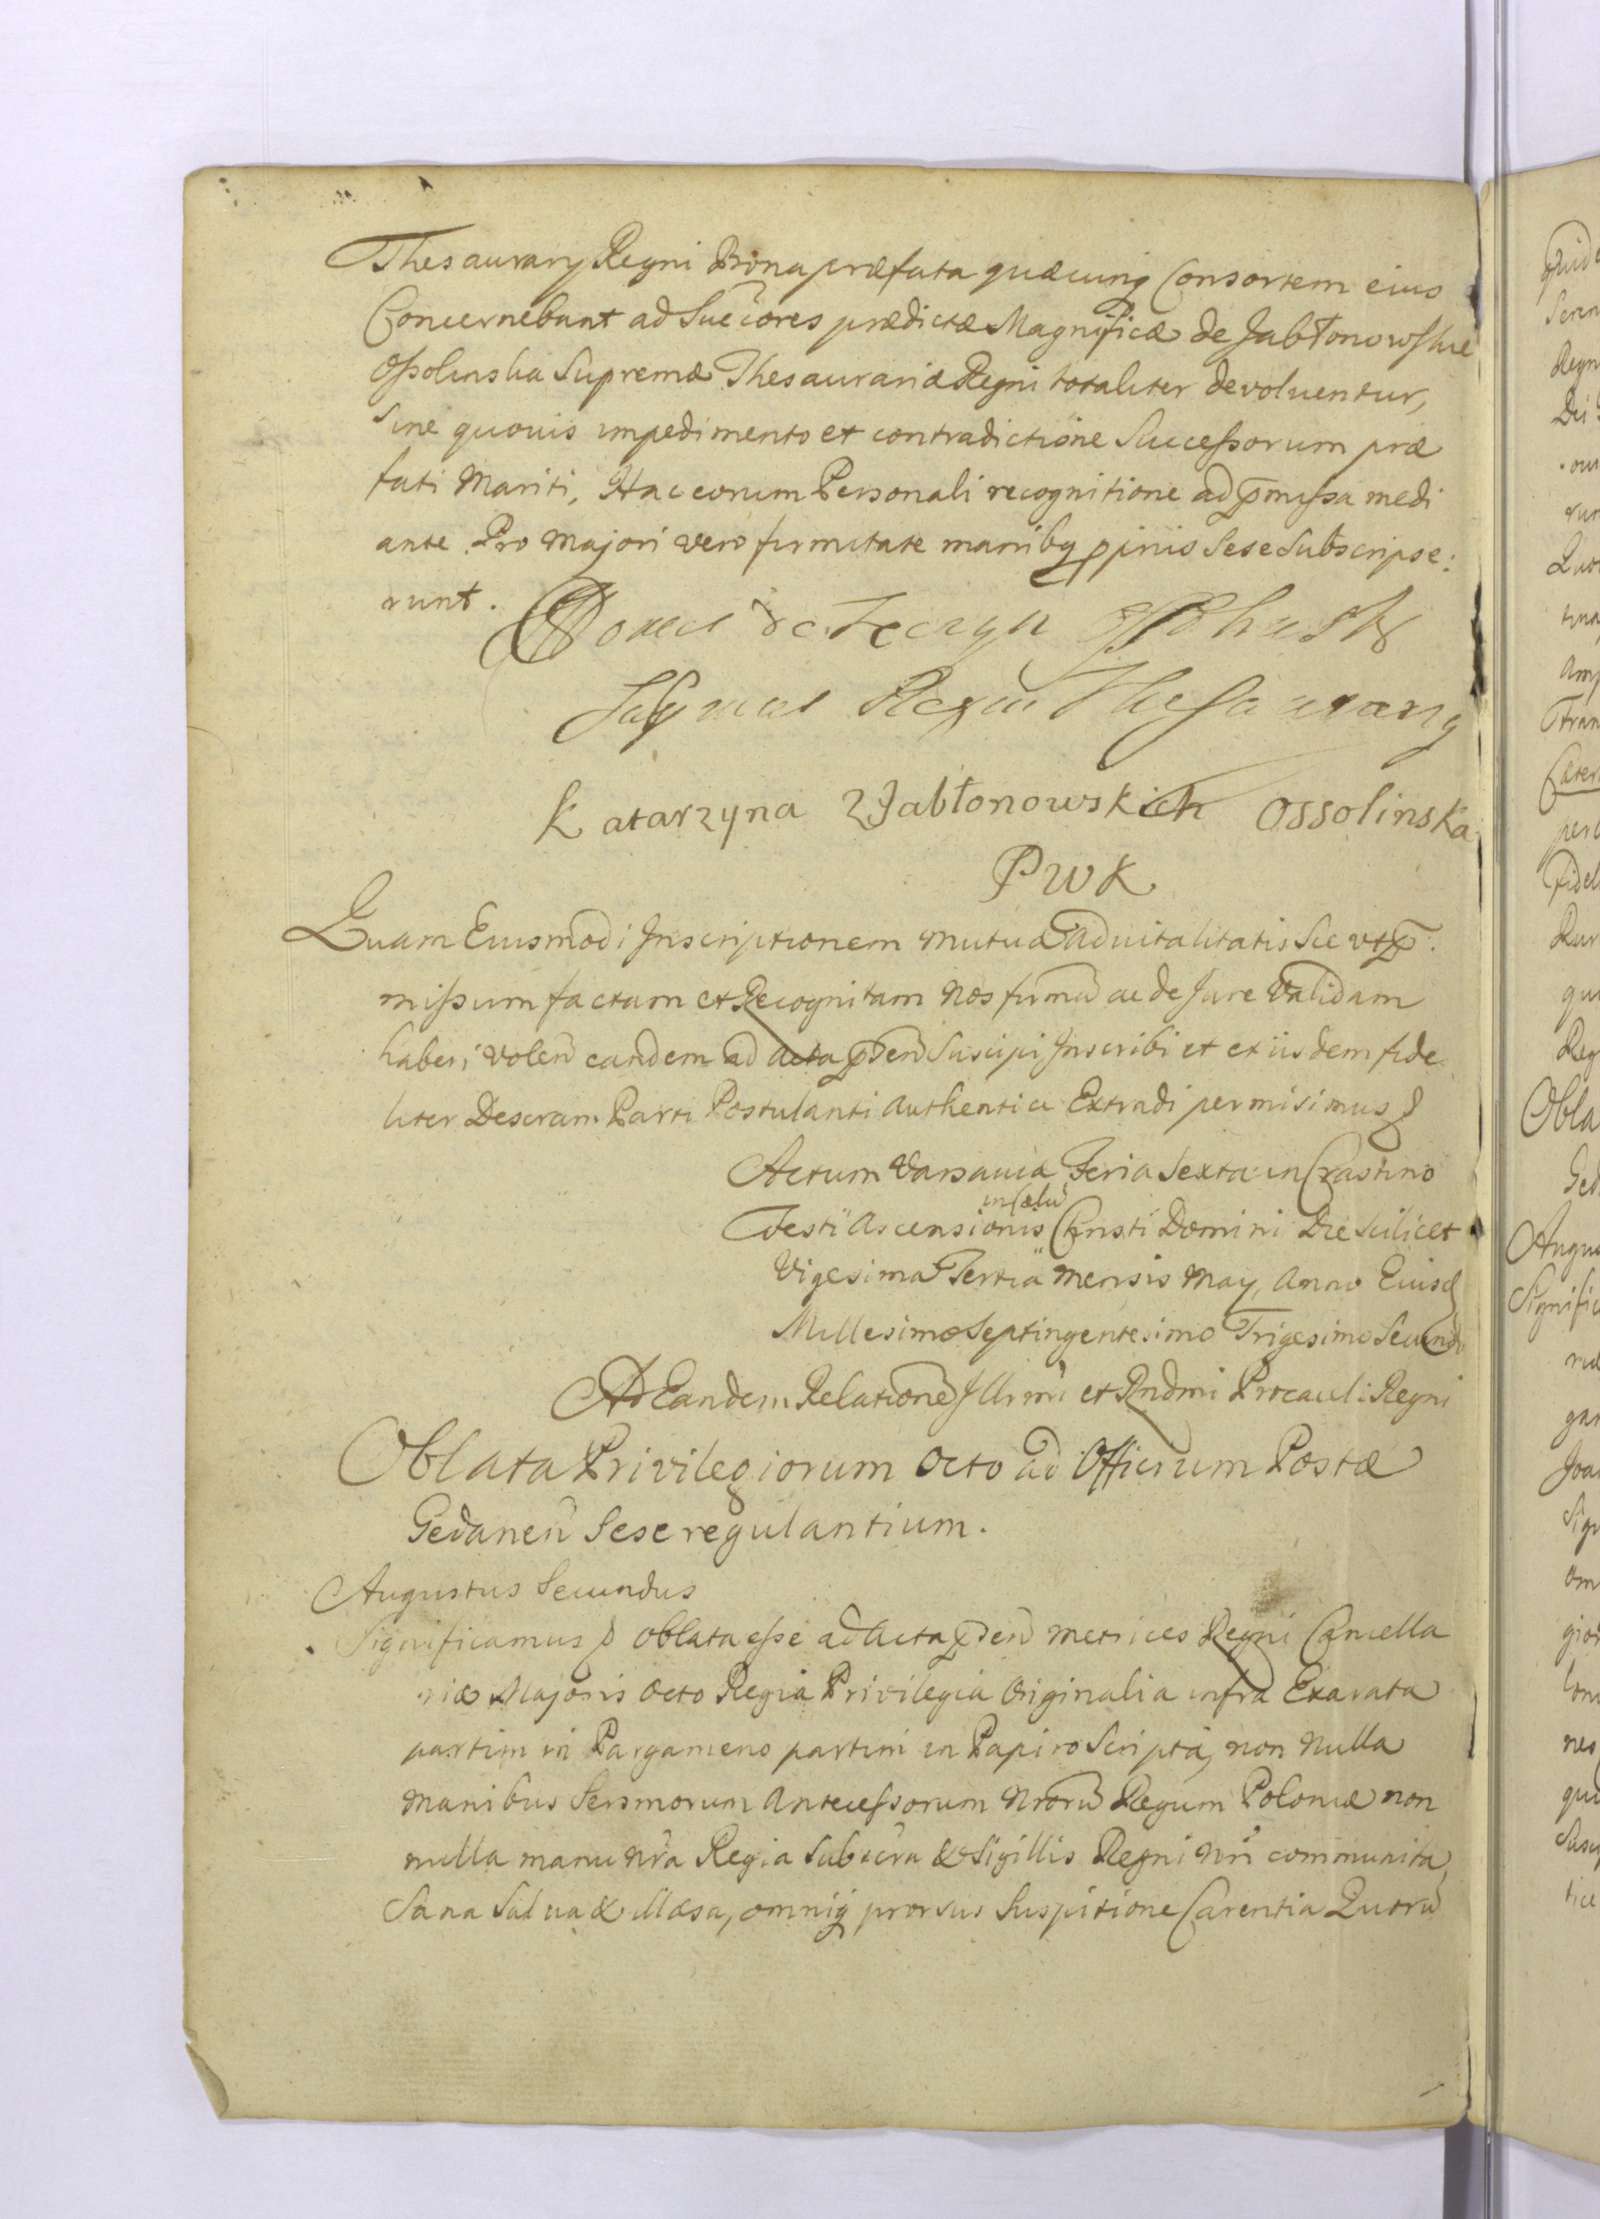 Thesaurarij Regni Bona præfata quæcunq Consortem eius
Concernebunt ad Succores prædictæ Magnificæ de Jabłonowskie
Ossolinska Supremæ Thesaurariæ Regni totaliter devoluentur,
Sine quouis impedimento et contradictione Successorum præ
fati Mariti, Hac eorum Personali recognitione ad pmissa medi
ante. Pro Majori vero firmitate manibq ppriis Sese Subscripse:
runt.
de Teczyn
Regni Thesaurarij
Katarzyna z Jabłonowskich Ossolinska
PWK
Quam Eiusmodi Inscriptionem Mutuæ Aduitalitatis Sic vt p.
missum factam et Recognitam Nos firmã ac de Jure Validam
haberi volen eandem ad Acta pden Suscipi Inscribi et ex iisdem fide
liter Descram Parti Postulanti Authentice Extradi permisimus
Actum Varsaviæ Feria Sexta in Crastino
in Cælũ
Festi Ascensionis Christi Domini Die Scilicet
Vigesima Tertia Mensis May, Anno Eiusd
Millesimo Septingentesimo Trigesimo Secundo
Ad Eandem Relatione Illrmi et Rndmi Procancli Regni
Oblata Privilegiorum Octo ad Officium Postæ
Gedanen Sese regulantium.
Augustus Secundus
Significamus p oblata esse ad Acta pden Metrices Regni Cancella
riæ Majoris Octo Regia Privilegia Originalia infra Exarata
partim in Pargameno partim in Papiro Scripta, non Nulla
Manibus Sersmorum Antecessorum Nrorũ Regum Poloniæ non
nulla manu Nra Regia Subscra & Sigillis Regni Nri communita,
Sana Salua & Illæsa, omniq prorsus Suspitione Carentia Quorũ